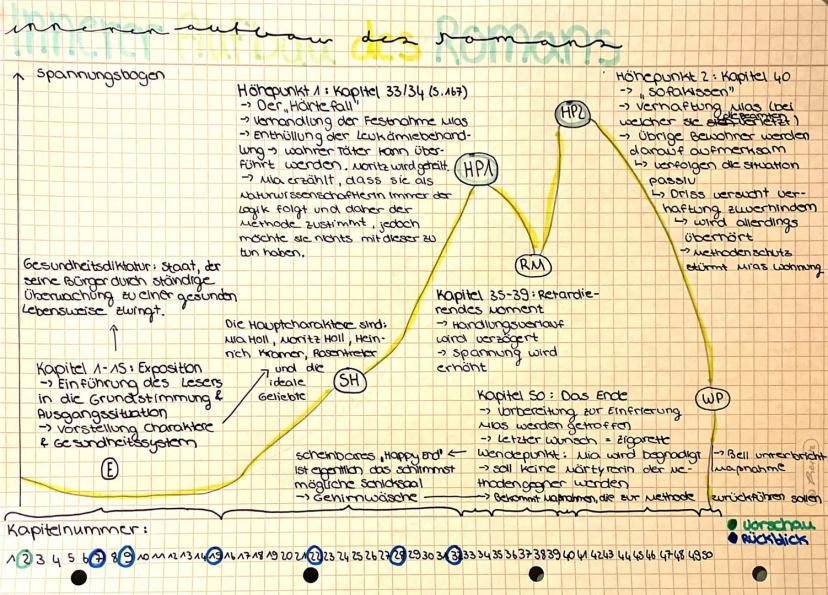 Innerer Aufbau des Romans
Spannungsbogen
Höhepunkt 1: Kapitel 33/34 (S.167)
→ Der „Härtefall"
→ Verhandlung der Festnahme Mias
→ Enthüllung der Leukämiebehand-
lung → wahrer Täter kann über-
führt werden. Moritz wird geheilt.
→ Mia erzählt, dass sie als
Naturwissenschaftlerin immer der
Logik folgt und daher der
Methode zustimmt, jedoch
möchte sie nichts mit dieser zu
tun haben.
HP1
HP2
Höhepunkt 2: Kapitel 40
→ „Sofakissen"
→ Verhaftung Mias (bei
welcher sie die Beamten verletzt)
→ Übrige Bewohner werden
darauf aufmerksam
↳ verfolgen die Situation
passiv
↳ Driss versucht Ver-
haftung zu verhindern
↳ wird allerdings
überhört
→ Methodenschutz
stürmt Mias Wohnung
RM
Kapitel 35-39: Retardie-
rendes Moment
→ Handlungsverlauf
wird verzögert
→ Spannung wird
erhöht
Gesundheitsdiktatur: Staat, der
seine Bürger durch ständige
Überwachung zu einer gesunden
Lebensweise zwingt.
Die Hauptcharaktere sind:
Mia Holl, Moritz Holl, Hein-
rich Kramer, Rosentreter
und die
ideale
Geliebte
Kapitel 1-15: Exposition
→ Einführung des Lesers
in die Grundstimmung &
Ausgangssituation
→ Vorstellung Charaktere
& Gesundheitssystem
E
SH
WP
Kapitel 50: Das Ende
→ Vorbereitung zur Einfrierung
Mias werden getroffen
→ Letzter Wunsch = Zigarette
Wendepunkt: Mia wird begnadigt
→ soll keine Märtyrerin der Me-
thodengegner werden
→ Bekommt Maßnahmen, die zur Methode zurückführen sollen
→ Bell unterbricht
Maßnahme
scheinbares „Happy End" ←
ist eigentlich das schlimmst
mögliche Schicksaal
→ Gehirnwäsche
Kapitelnummer:
Vorschau
Rückblick
1 2 3 4 5 6 7 8 9 10 11 12 13 14 15 16 17 18 19 20 21 22 23 24 25 26 27 28 29 30 31 32 33 34 35 36 37 38 39 40 41 42 43 44 45 46 47 48 49 50